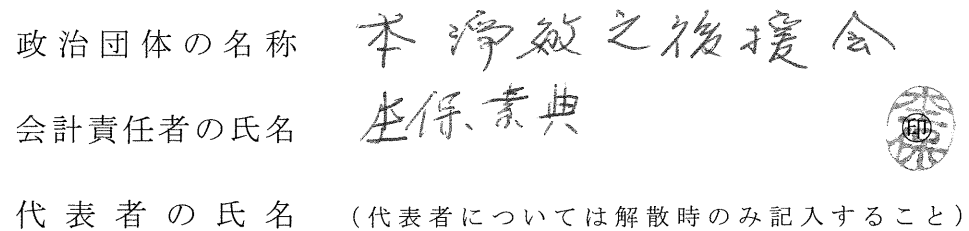 政治団体の名称 本淨敏之後援会
会計責任者の氏名 生保素典 印
代表者の氏名 (代表者については解散時のみ記入すること)